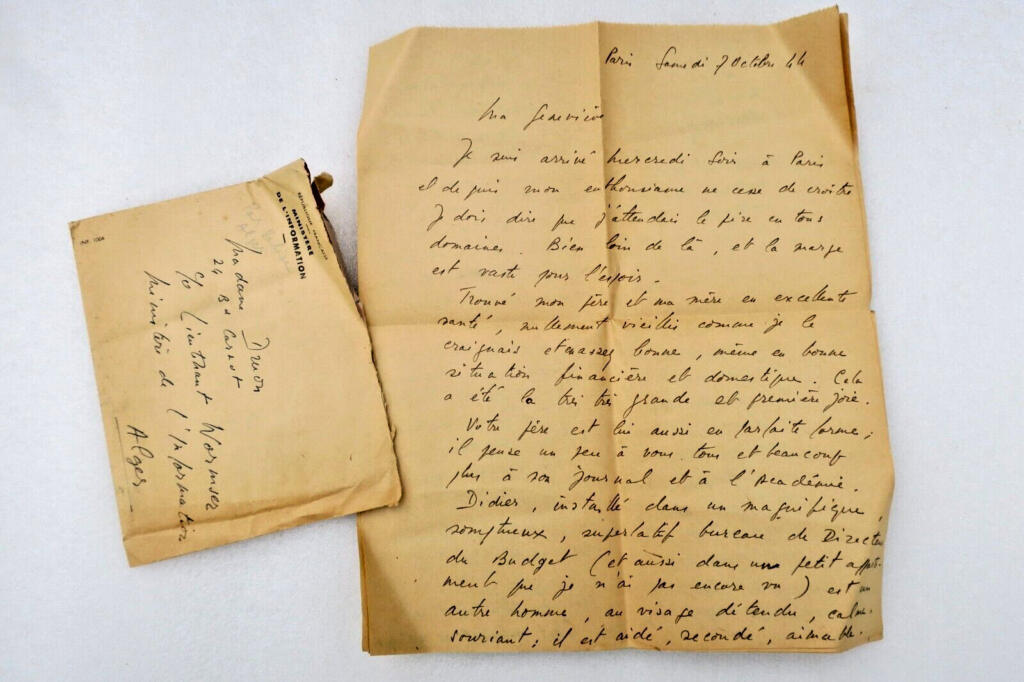 INF. 1004
RÉPUBLIQUE FRANÇAISE
MINISTÈRE
DE L'INFORMATION
Madame Druon
24 Bd Carnot
c/o Lieutenant Wormser
Ministère de l'Information
Alger
Paris Samedi 7 Octobre 44
Ma Geneviève
Je suis arrivé mercredi soir à Paris
et depuis mon enthousiasme ne cesse de croître
Je dois dire que j'attendais le pire en tous
domaines. Bien loin de là, et la marge
est vaste pour l'espoir.
Trouvé mon père et ma mère en excellente
santé, nullement vieillis comme je le
craignais et en assez bonne, même en bonne
situation financière et domestique. Cela
a été la très très grande et première joie.
Votre père est lui aussi en parfaite forme;
il pense un peu à vous tous et beaucoup
plus à son journal et à l'Académie.
Didier, installé dans un magnifique,
somptueux, superlatif bureau de Directeur
du Budget (et aussi dans un petit apparte-
ment que je n'ai pas encore vu) est un
autre homme, au visage détendu, calme,
souriant; il est aidé, secondé, aimable.